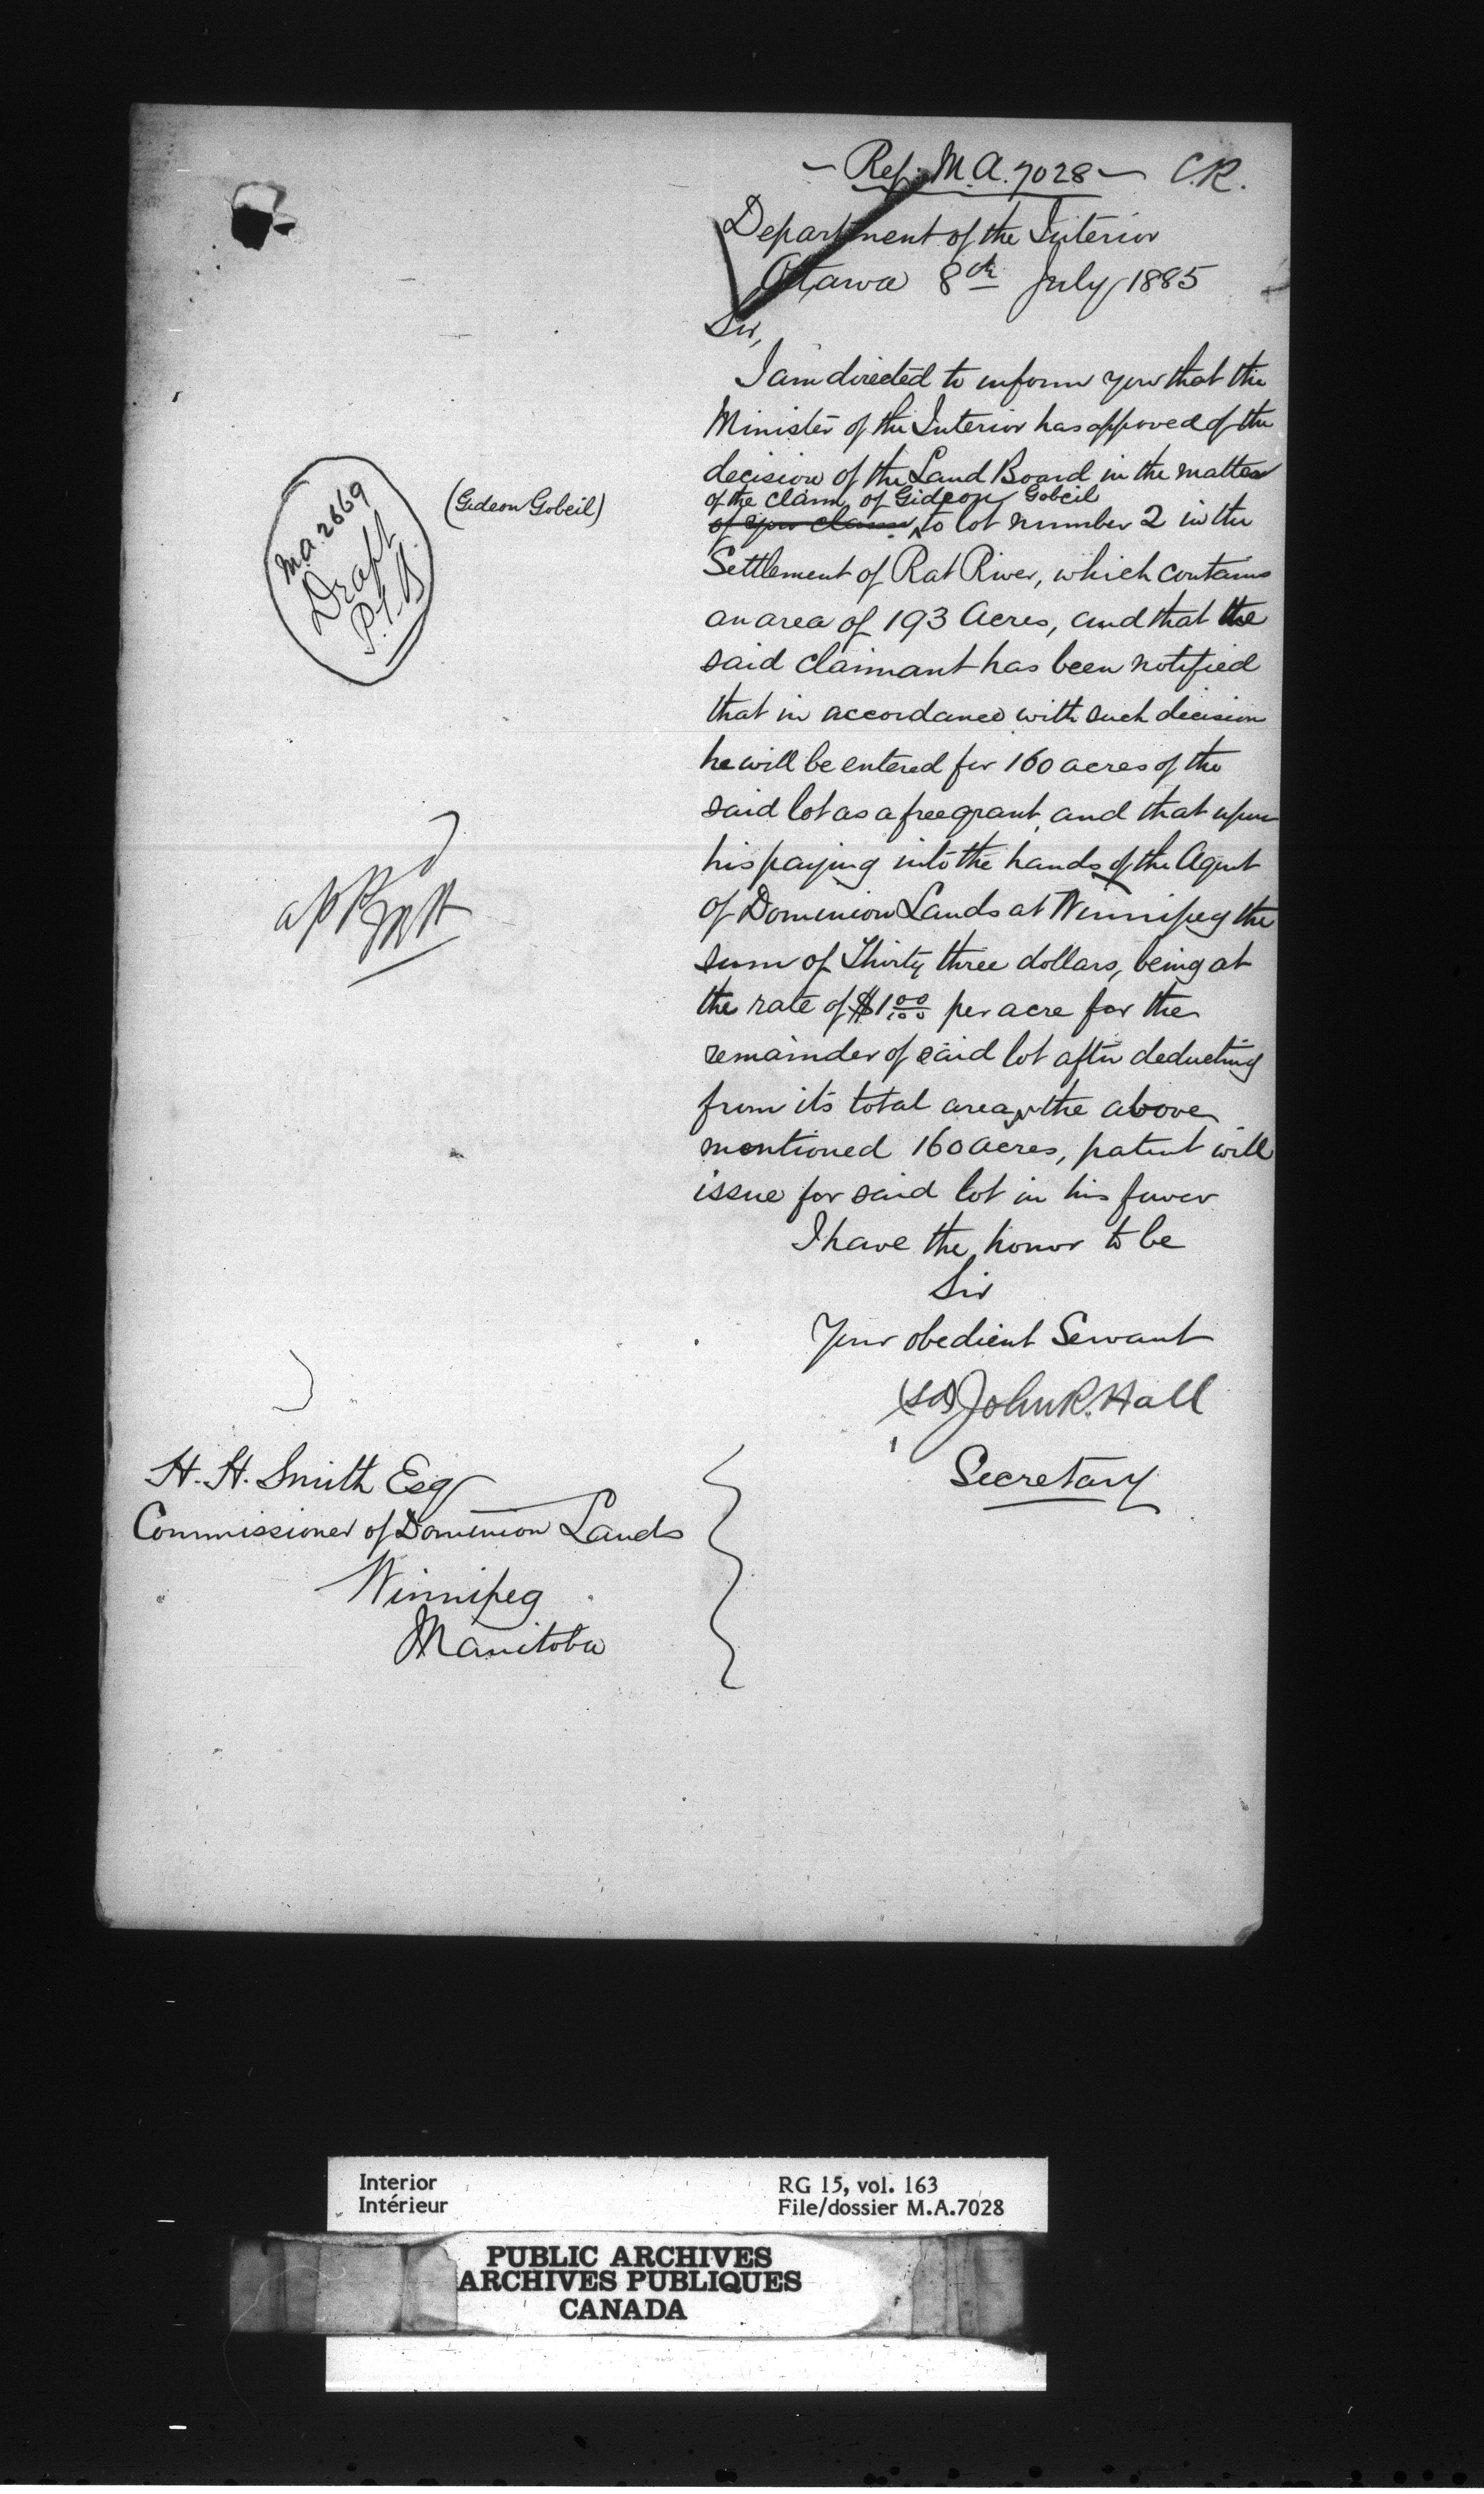 Ref. M.A. 7028 C.R.
Department of the Interior
Ottawa 8th July 1885
Sir,
I am directed to inform you that the
Minister of the Interior has approved of the
decision of the Land Board in the matter
of the claim of Gideon Gobeil
of your claim to lot number 2 in the
Settlement of Rat River, which contains
an area of 193 Acres, and that the
said claimant has been notified
that in accordance with such decision
he will be entered for 160 acres of the
said lot as a free grant, and that upon
his paying into the hands of the Agent
of Dominion Lands at Winnipeg the
sum of Thirty three dollars, being at
the rate of $1 00/100 per acre for the
remainder of said lot after deducting
from its total area, the above
mentioned 160 acres, patent will
issue for said lot in his favor
I have the honor to be
Sir
Your obedient Servant
(sd) John R. Hall
Secretary
(Gideon Gobeil)
M.A. 2669
Draft
H. H. Smith Esq
Commissioner of Dominion Lands
Winnipeg
Manitoba
Interior
Intérieur
RG 15, vol. 163
File/dossier M.A.7028
PUBLIC ARCHIVES
ARCHIVES PUBLIQUES
CANADA